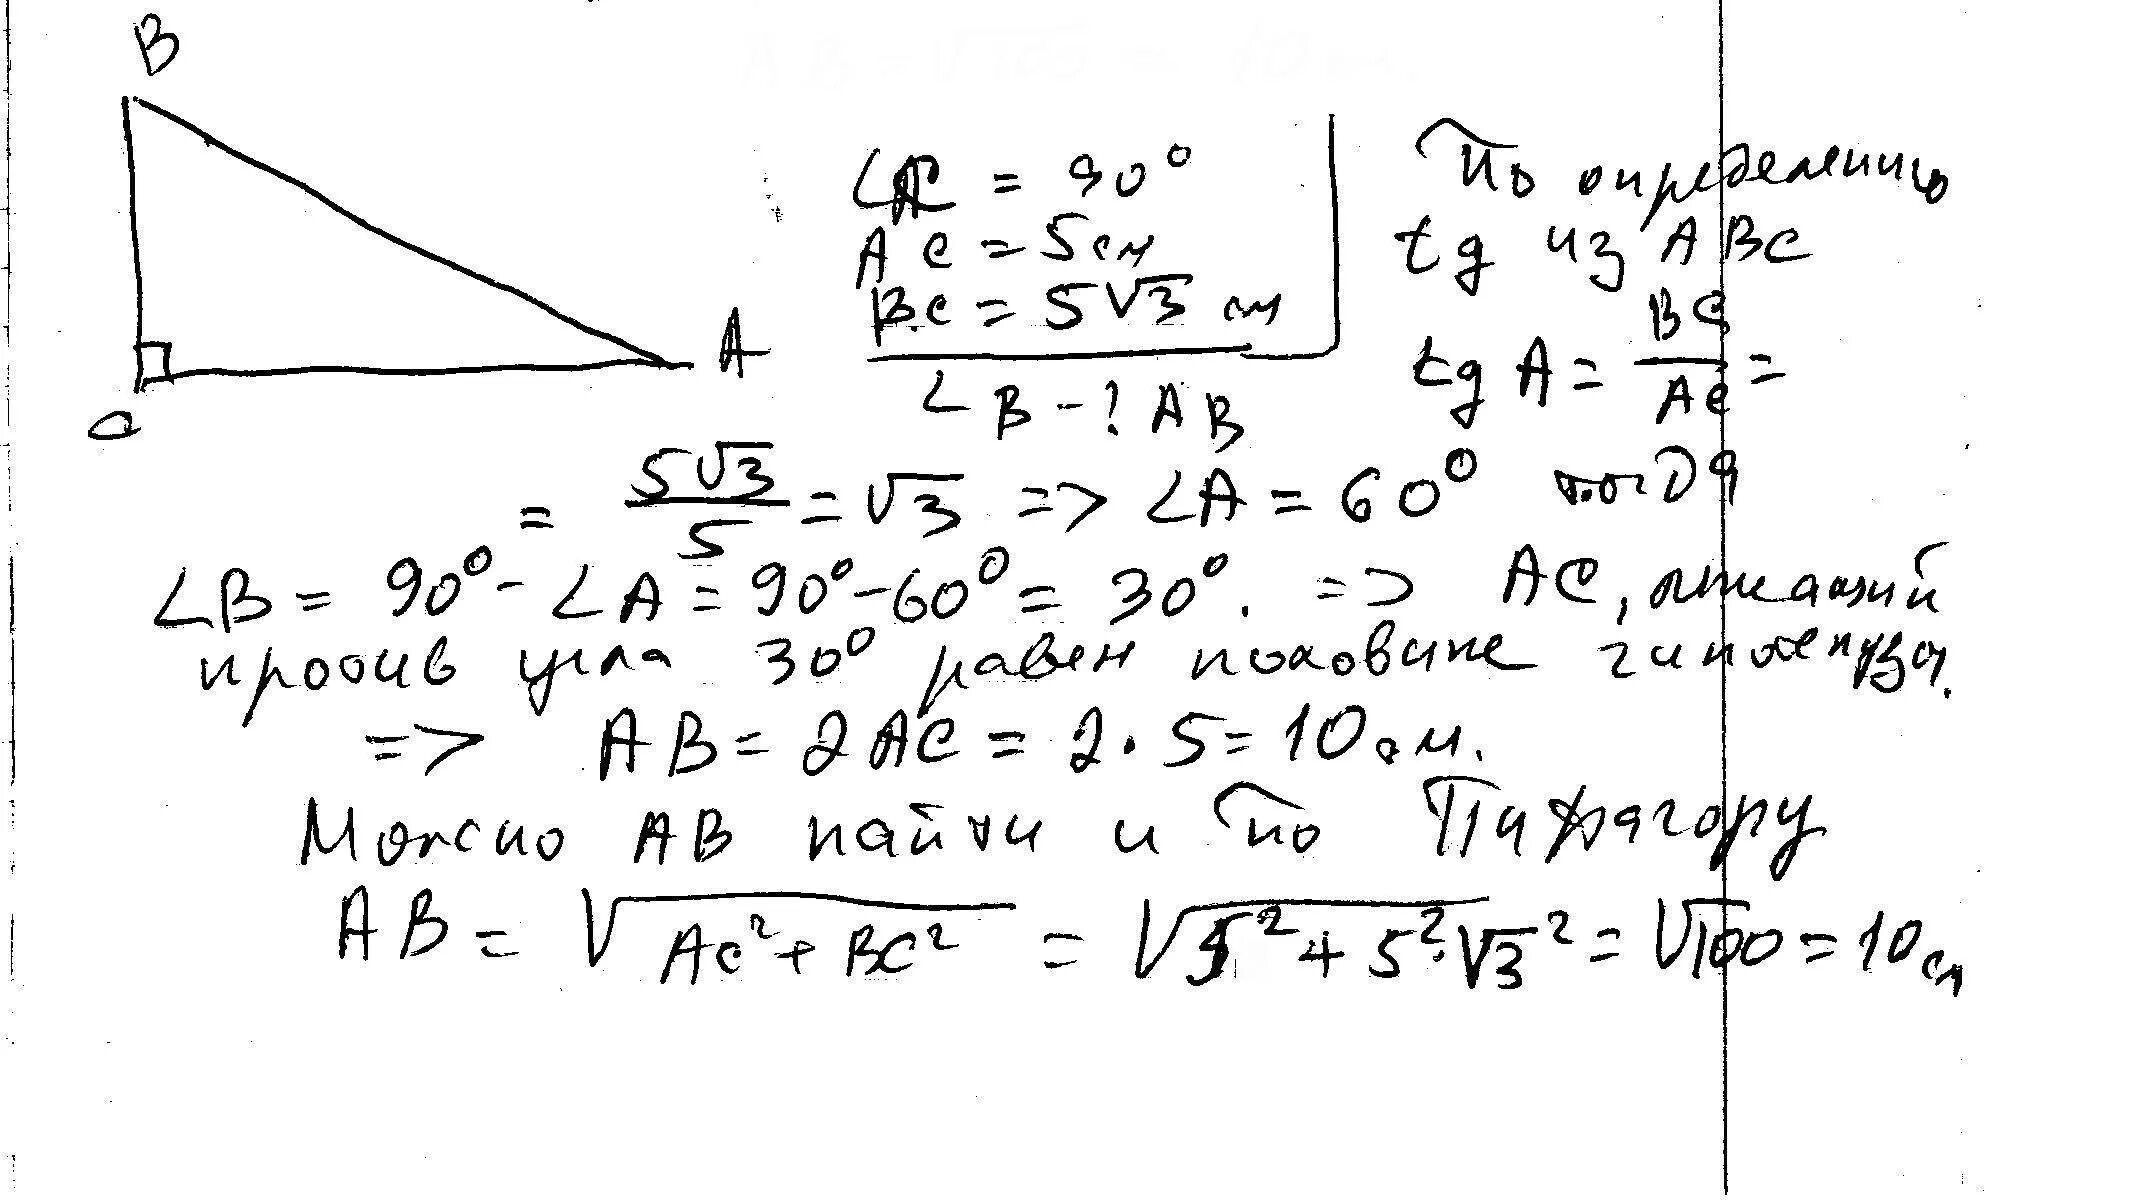 B
∠C = 90°
AC = 5 см
BC = 5√3 см
∠B - ? AB
A
C
По определению
tg из ABC
tg A = BC/AC =
= 5√3/5 = √3 => ∠A = 60° тогда
∠B = 90° - ∠A = 90° - 60° = 30°. => AC, лежащий
против угла 30° равен половине гипотенузы.
=> AB = 2AC = 2 · 5 = 10 см.
Можно AB найти и по Пифагору
AB = √(AC² + BC²) = √(5² + 5²·√3²) = √100 = 10 см